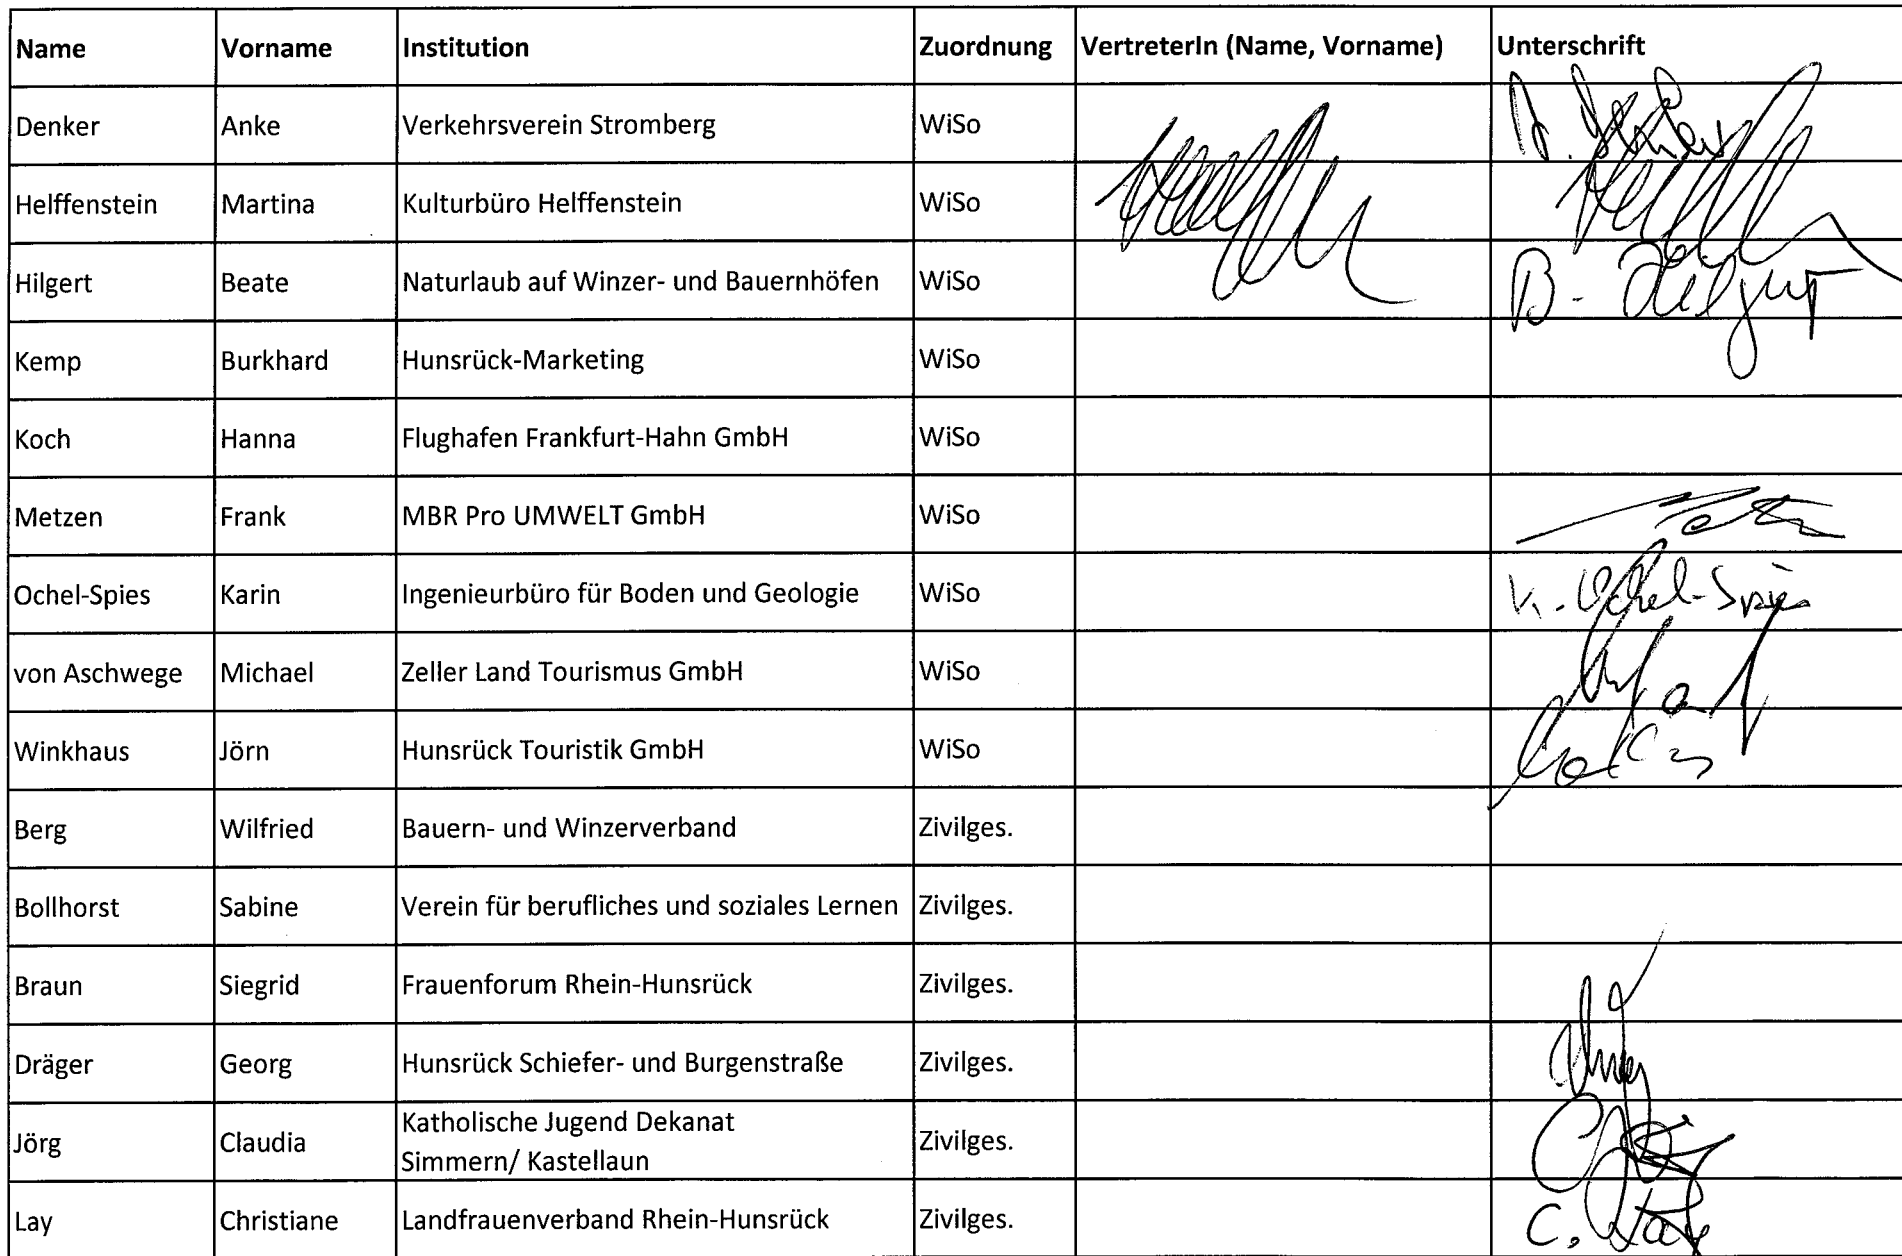 Name Vorname Institution Zuordnung VertreterIn (Name, Vorname) Unterschrift
Denker Anke Verkehrsverein Stromberg WiSo
Helffenstein Martina Kulturbüro Helffenstein WiSo
Hilgert Beate Naturlaub auf Winzer- und Bauernhöfen WiSo B. Hilgert
Kemp Burkhard Hunsrück-Marketing WiSo
Koch Hanna Flughafen Frankfurt-Hahn GmbH WiSo
Metzen Frank MBR Pro UMWELT GmbH WiSo
Ochel-Spies Karin Ingenieurbüro für Boden und Geologie WiSo K. Ochel-Spies
von Aschwege Michael Zeller Land Tourismus GmbH WiSo
Winkhaus Jörn Hunsrück Touristik GmbH WiSo
Berg Wilfried Bauern- und Winzerverband Zivilges.
Bollhorst Sabine Verein für berufliches und soziales Lernen Zivilges.
Braun Siegrid Frauenforum Rhein-Hunsrück Zivilges.
Dräger Georg Hunsrück Schiefer- und Burgenstraße Zivilges.
Jörg Claudia Katholische Jugend Dekanat
Simmern/ Kastellaun Zivilges.
Lay Christiane Landfrauenverband Rhein-Hunsrück Zivilges.